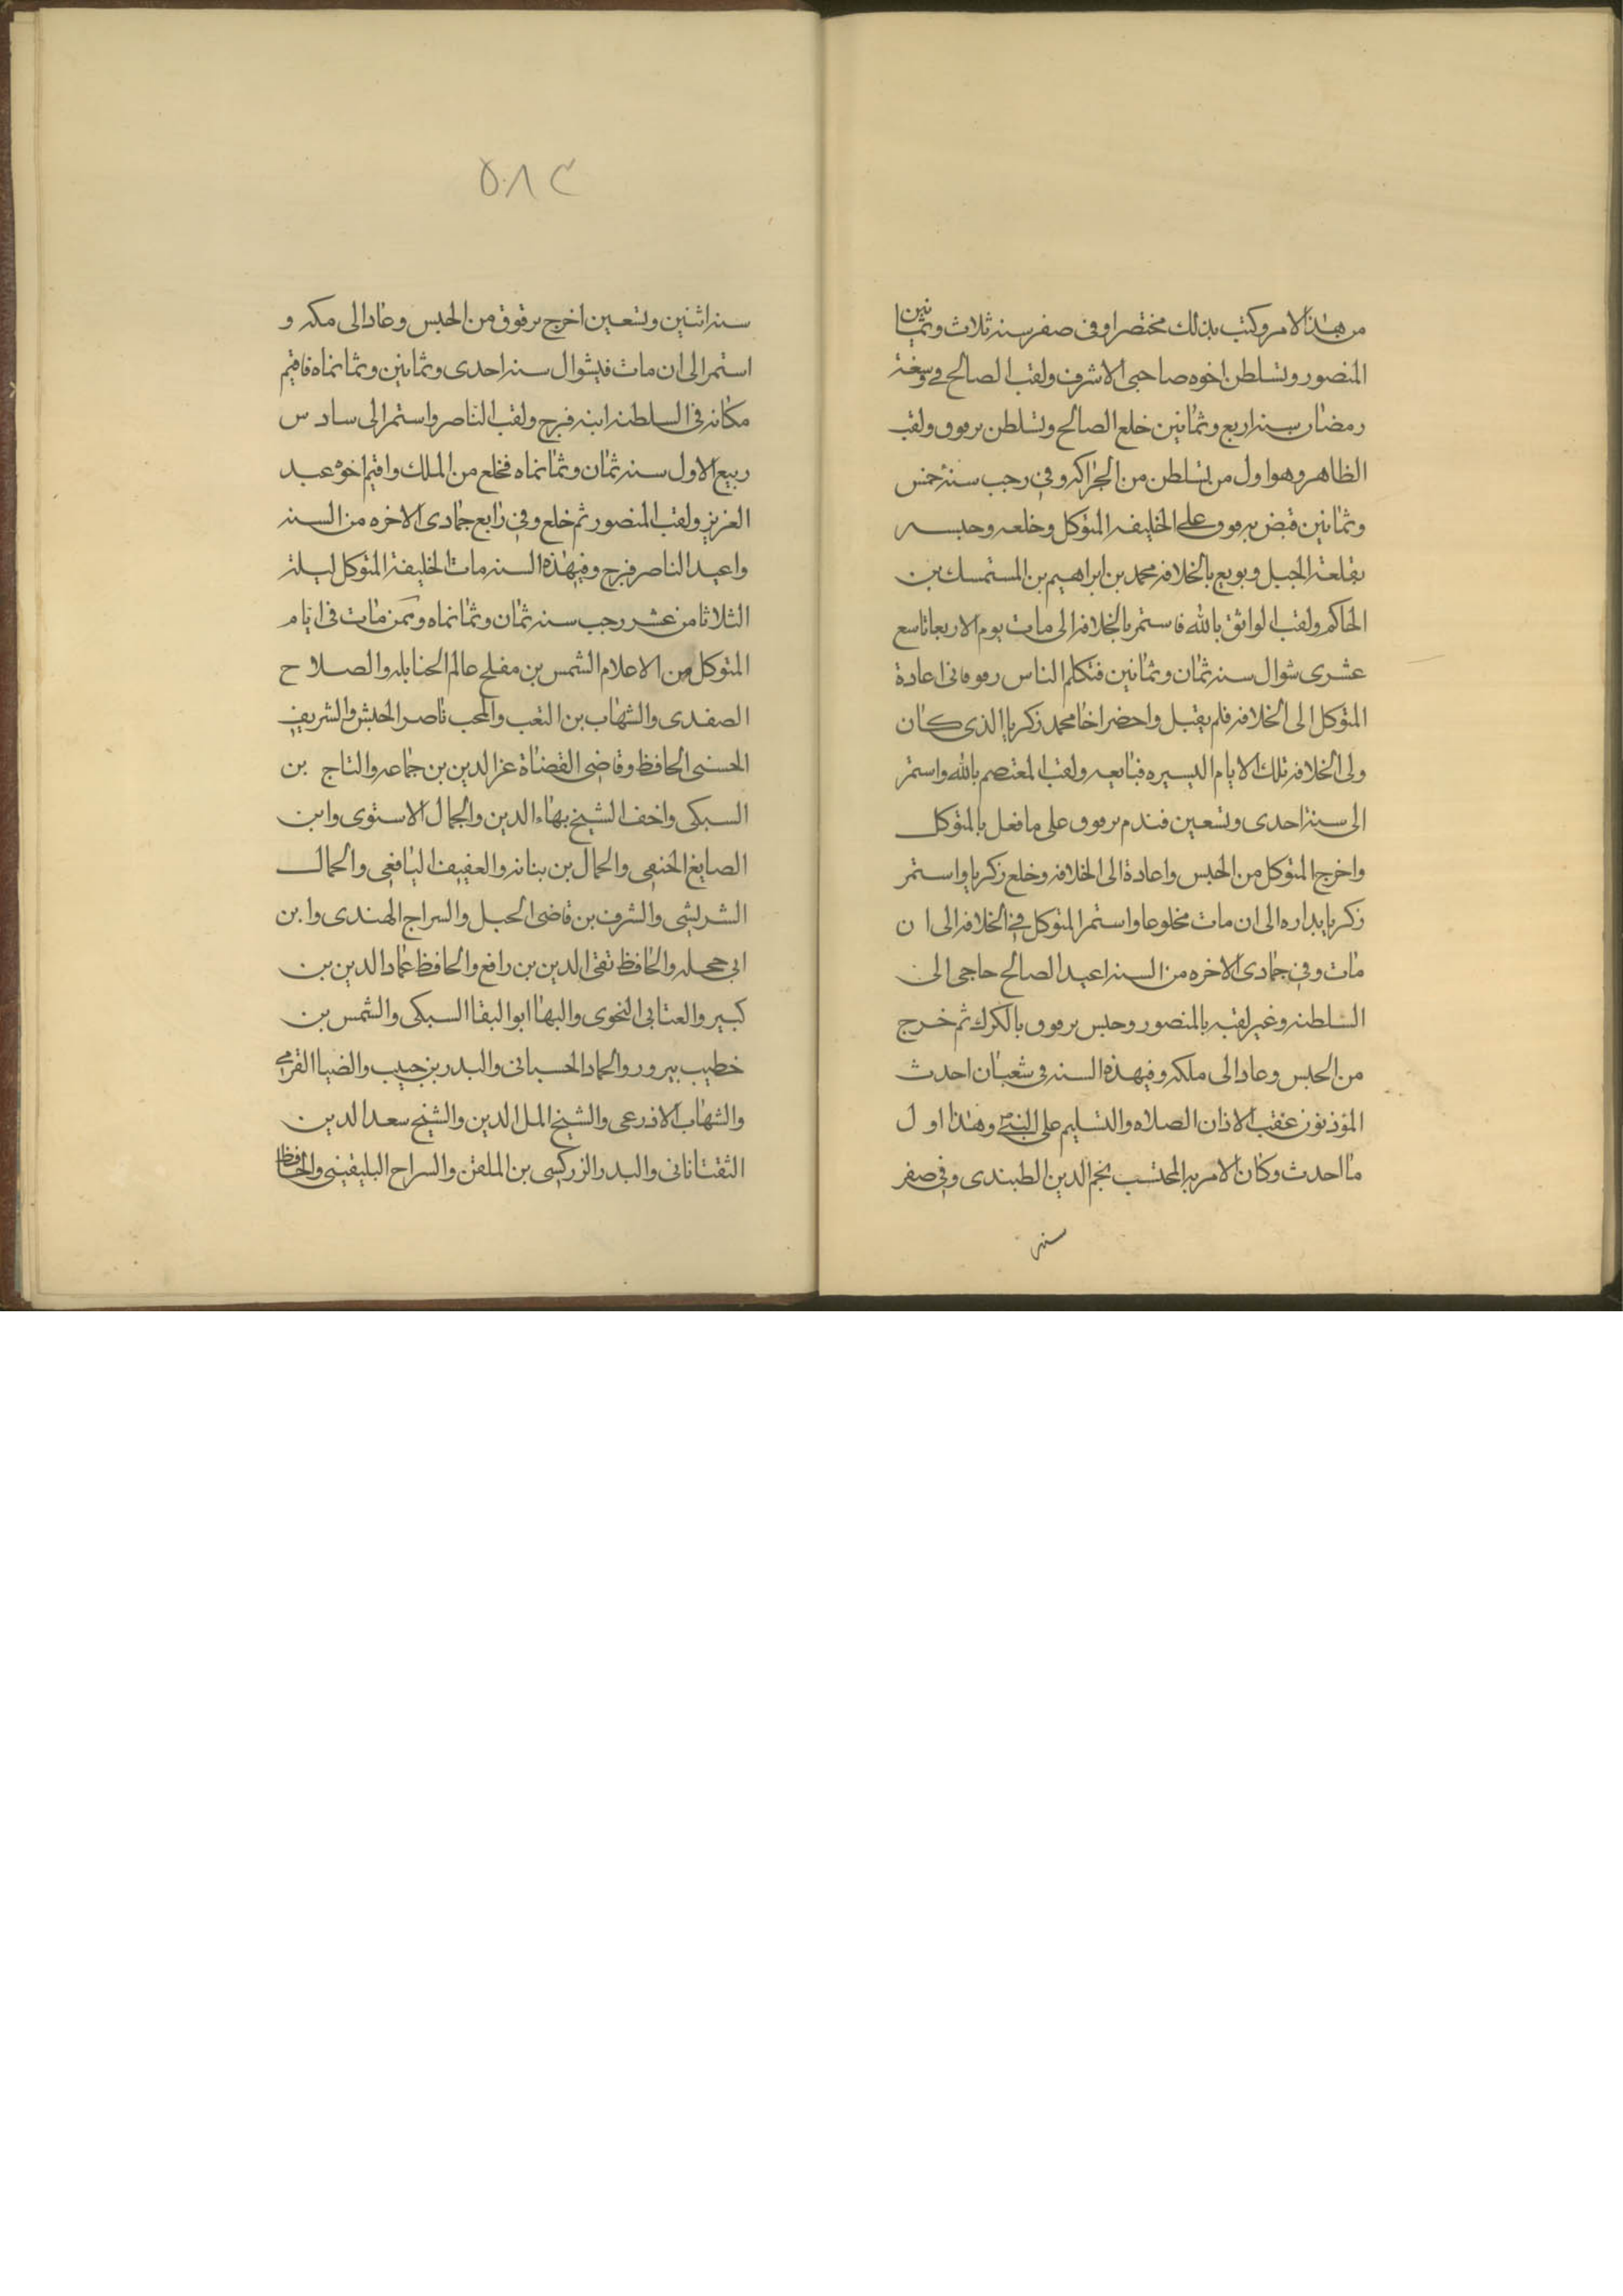 من هذا الامر وكتب بذلك مختصرا وفى صفر سنه ثلاث وثمانين
المنصور وتسلطن اخوه صاجى الاشرف ولقب الصالح فى
رمضان سنه اربع وثمانين خلع الصالح وتسلطن برقوق ولقب
الظاهر وهو اول من تسلطن من الجراكه وفى رجب سنة خمس
وثمانين قبض برقوق على الخليفه المتوكل وخلعه وحبسه
بقلعة الجبل وبويع بالخلافه محمد بن ابراهيم بن المستمسك بن
الحاكم ولقب الواثق بالله فاستمر بالخلافه الى مات يوم الاربعا تاسع
عشرى شوال سنه ثمان وثمانين فتكلم الناس فى اعادة
المتوكل الى الخلافه فلم يقبل واحضر اخا محمد زكريا الذى كان
ولى الخلافه تلك الايام اليسيره فبايعه ولقب المعتصم بالله واستمر
الى سنه احدى وتسعين فندم برقوق على ما فعل بالمتوكل
واخرج المتوكل من الحبس واعادة الى الخلافه وخلع زكريا واستمر
زكريا بداره الى ان مات مخلوعا واستمر المتوكل فى الخلافه الى ان
مات وفى جمادى الاخره من السنه اعيد الصالح حاجى الى
السلطنه وغير لقبه بالمنصور وحبس برقوق بالكرك ثم خرج
من الحبس وعاد الى ملكه وفيهذه السنه فى شعبان احدث
المؤذنون عقب الاذان الصلاه والتسليم على النبى وهذا اول
ما احدث وكان الامر به المحتسب نجم الدين الطبندى وفى صفر
سنه
٥٠٨٣
سنه اثنين وتسعين اخرج برقوق من الحبس وعاد الى مكه و
استمر الى ان مات فيشوال سنه احدى وثمانين وثمانماه فاقيم
مكانه فى السلطنه ابنه فرج ولقب الناصر واستمر الى سادس
ربيع الاول سنه ثمان وثمانماه فخلع من الملك واقيم اخوه عبد
العزيز ولقب المنصور ثم خلع وفى رابع جمادى الاخره من السنه
واعيد الناصر فرج وفيهذه السنه مات الخليفة المتوكل ليلة
الثلاثا من عشر رجب سنه ثمان وثمانماه وممن مات فى ايام
المتوكل من الاعلام الشمس بن مفلح عالم الحنابله والصلاح
الصفدى والشهاب بن النقب والمحب ناصر الجيش والشريف
الحسنى الحافظ وقاضى القضاة عز الدين بن جماعه والتاج بن
السبكى واخف الشيخ بهاء الدين والجمال الاسنوى وابن
الصايغ الحنفى والجمال بن بنانه والعفيف اليافعى والجمال
الشريشى والشرف بن قاضى الجبل والسراج الهندى وابن
ابى حجله والحافظ تقى الدين بن رافع والحافظ عماد الدين بن
كبير والعتابى النحوى والبها ابو البقا السبكى والشمس بن
خطيب بيرور والعماد الحسبانى والبدر بن حبيب والضيا القرمى
والشهاب الاذرعى والشيخ المل الدين والشيخ سعد الدين
التقتازانى والبدر الزركسى بن الملقن والسراج البلقينى والحافظ